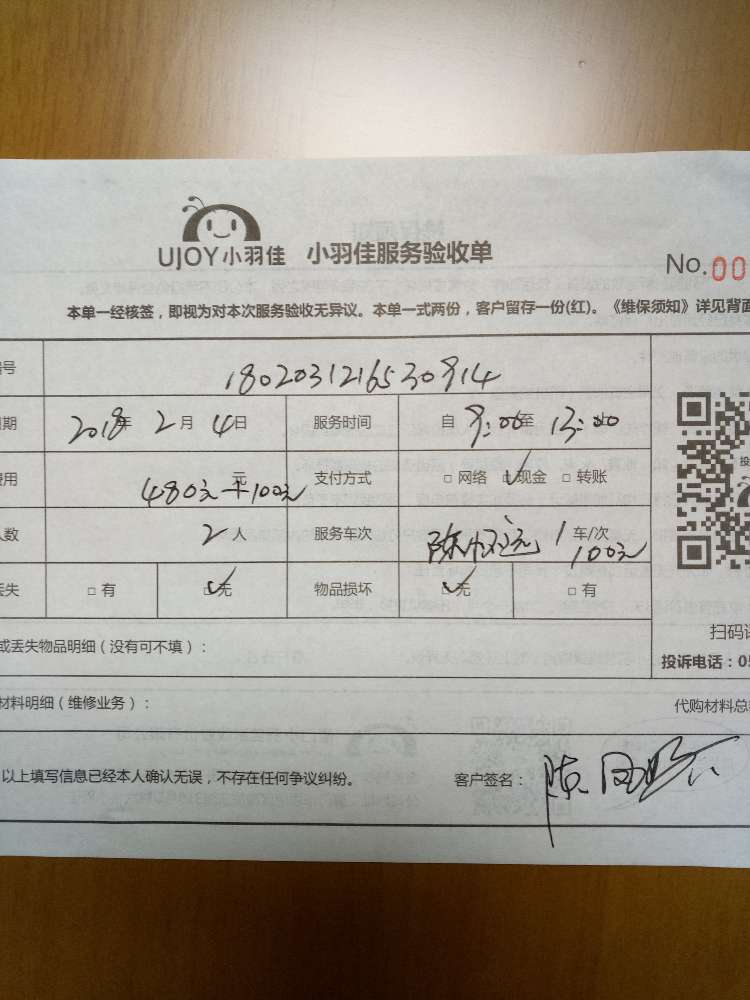 UJOY小羽佳 小羽佳服务验收单
No.00
本单一经核签，即视为对本次服务验收无异议。本单一式两份，客户留存一份(红)。《维保须知》详见背面
号 1802031216530914
期 2018年 2月 4日 服务时间 自 9:00至 13:00
费用 480元+100元 支付方式 □ 网络 ☑ 现金 □ 转账
人数 2人 服务车次 1车/次
100元
丢失 □ 有 ☑ 无 物品损坏 ☑ 无 □ 有
扫码
或丢失物品明细（没有可不填）：
投诉电话：05
材料明细（维修业务）： 代购材料总
以上填写信息已经本人确认无误，不存在任何争议纠纷。 客户签名：陈